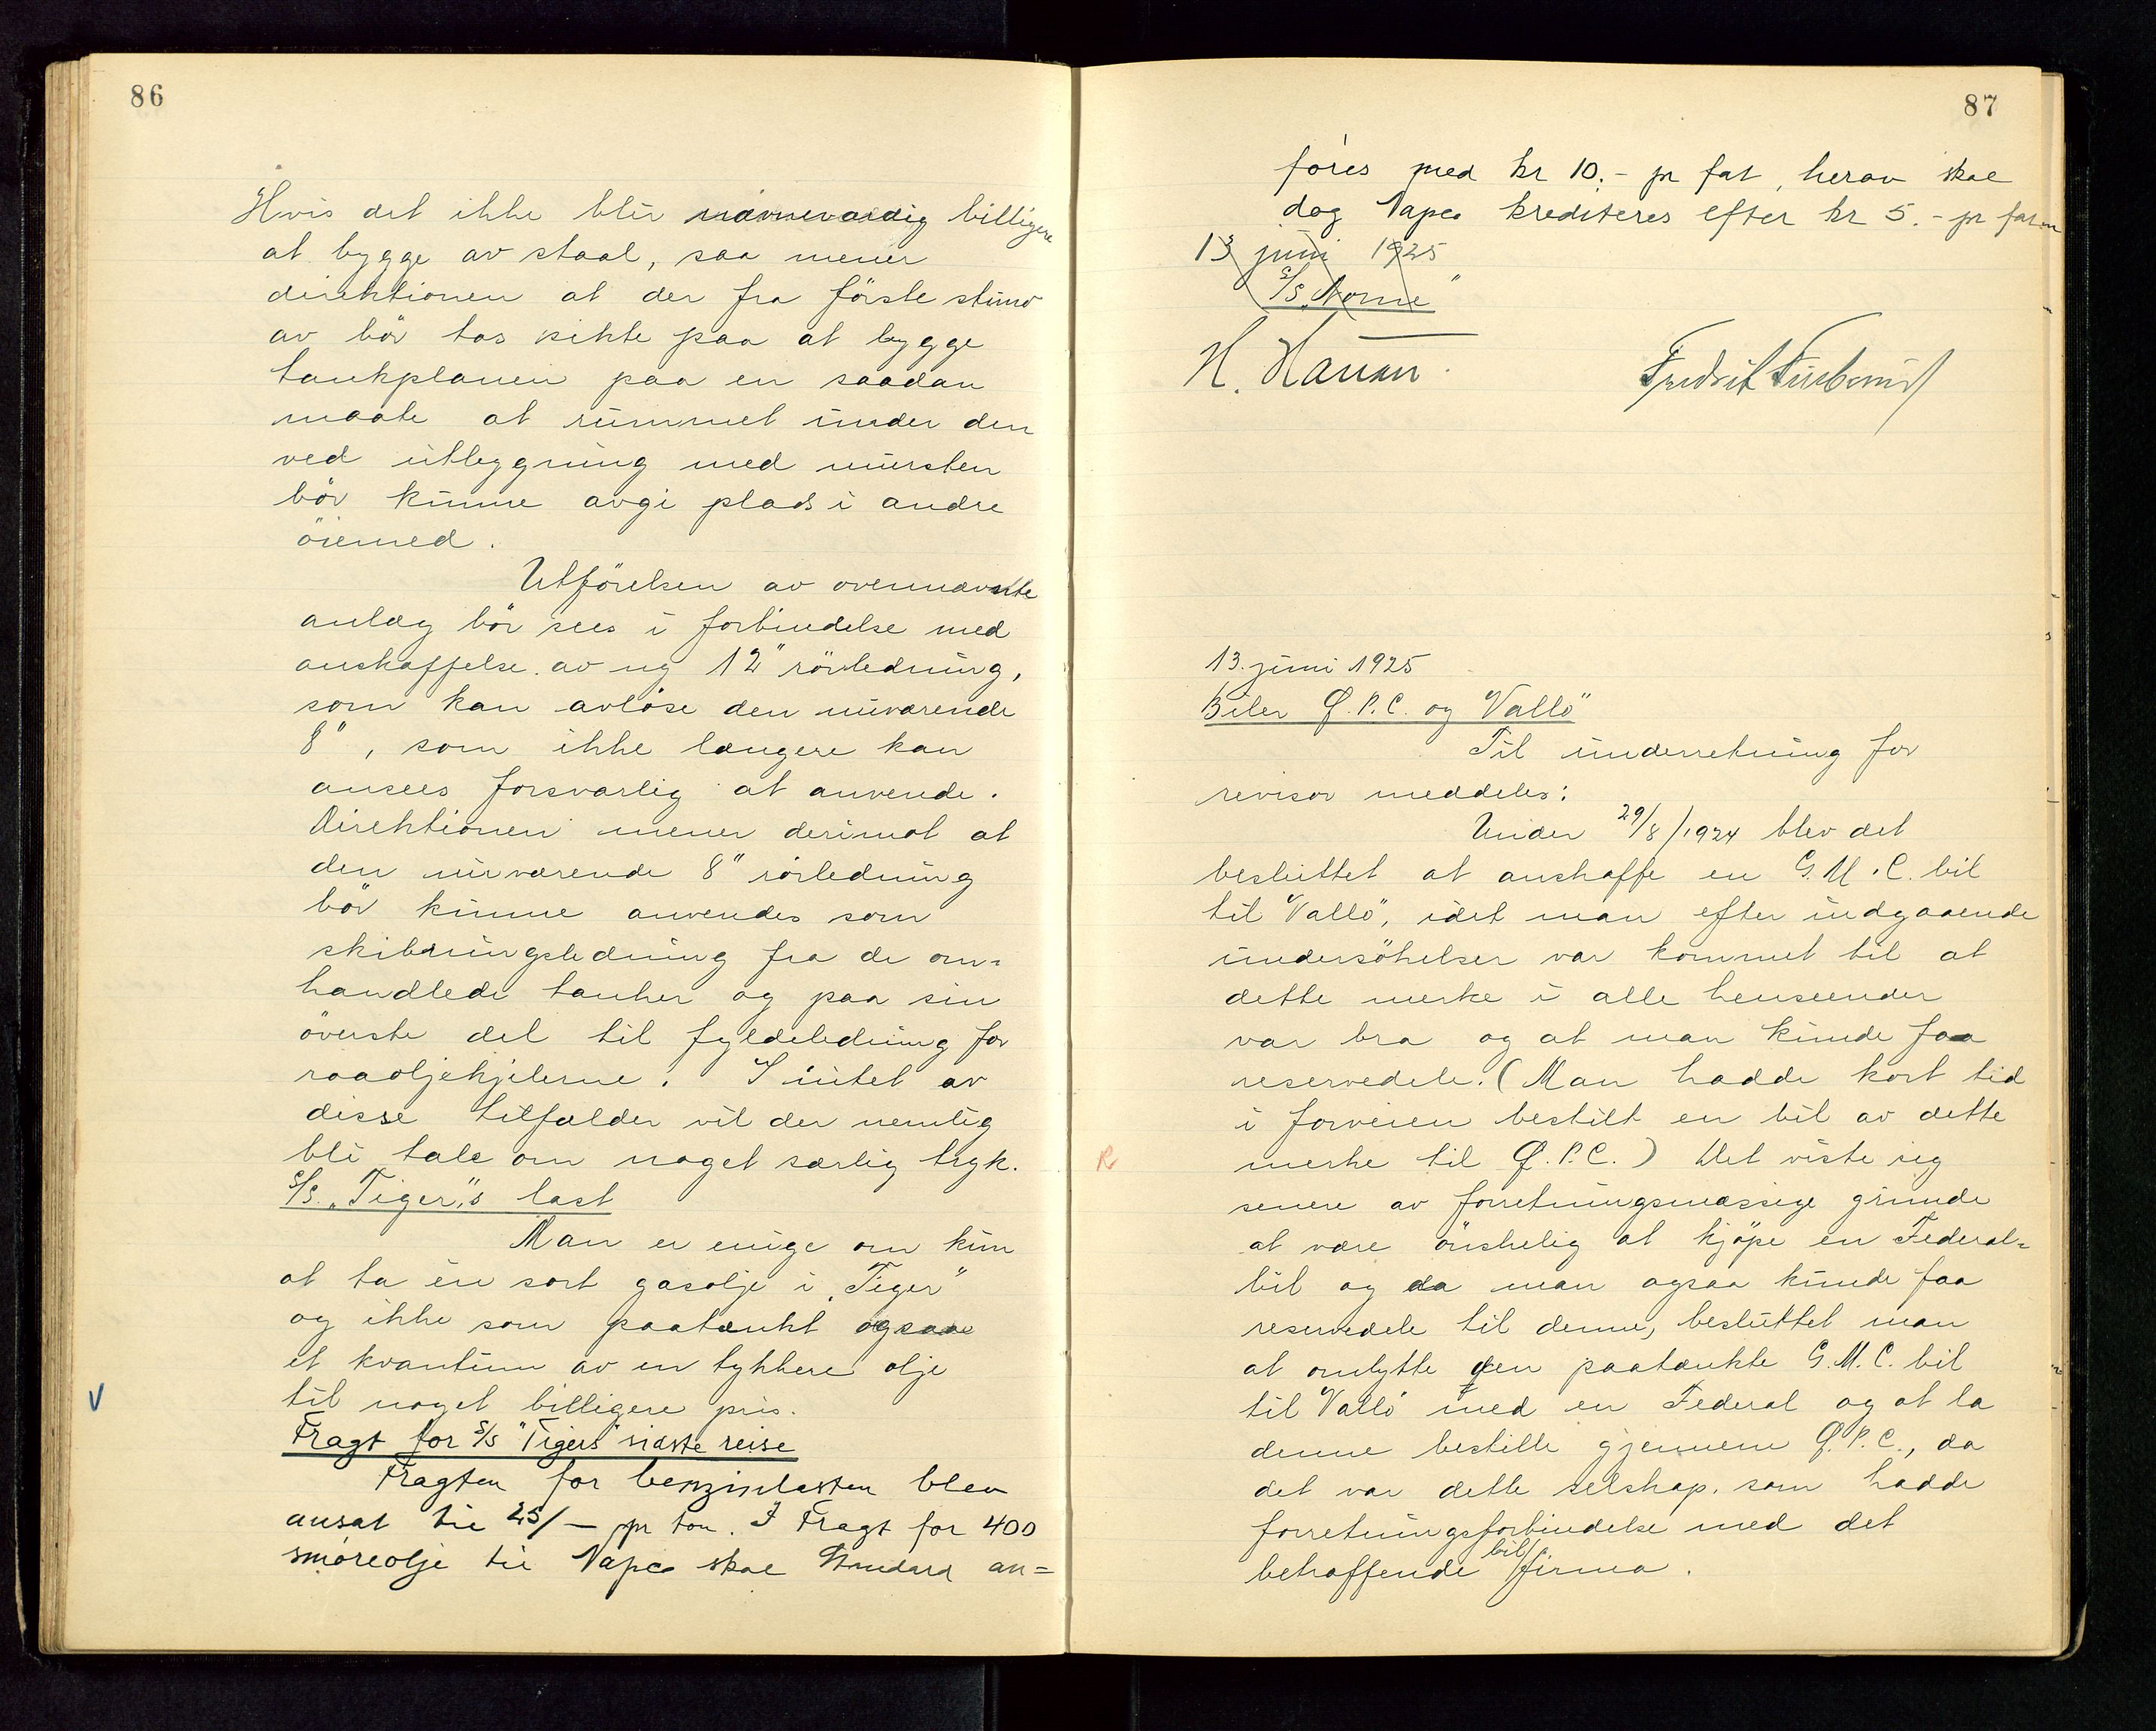 86
Hvis det ikke blir nævneværdig billigere
at bygge av staal, saa mener
direktionen at der fra förste stund
av bör tas sikte paa at bygge
tankplanen paa en saadan
maate at rummet under den
ved utbygning med mursten
bör kunne avgi plads i andre
öiemed.
Utförelsen av ovennævnte
anlæg bör sees i forbindelse med
anskaffelse av ny 12" rörledning,
som kan avlöse den nuværende
8", som ikke længere kan
ansees forsvarlig at anvende.
Direktionen mener derimot at
den nuværende 8" rörledning
bör kunne anvendes som
skibningsledning fra de om=
handlede tanker og paa sin
överste del til fyldeledning for
raaoljekjelerne. I intet av
disse tilfælder vil der nemlig
bli tale om noget særlig tryk.
S/S. „Tiger"s last
Man er enige om kun
at ta en sort gasolje i „Tiger"
og ikke som paatænkt ogsaa
et kvantum av en tykkere olje
til noget billigere pris.
V
Fragt for S/S "Tigers" sidste reise
Fragten for benzinlasten blev
ansat til 25/– pr ton. I Fragt for 400
smöreolje til Vapco skal Standard an=
87
föres med kr 10.- pr fat, herav skal
dog Vapco krediteres efter kr 5.- pr fat
13 juni 1925
S/S „Norne"
H. Hansen Fredrik
13. juni 1925
Biler Ø.P.C. og "Vallö"
Til underretning for
revisor meddeles:
Under 29/8/1924 blev det
besluttet at anskaffe en G.M.C. bil
til "Vallö", idet man efter indgaaende
undersökelser var kommet til at
dette merke i alle henseender
var bra og at man kunde faa
reservedele. (Man hadde kort tid
i forveien bestilt en bil av dette
R
merke til Ø.P.C.) Det viste sig
senere av forretningsmæssige grunde
at være önskelig at kjöpe en Federal=
bil og da man ogsaa kunde faa
reservedele til denne, besluttet man
at ombytte den paatænkte G.M.C. bil
til "Vallö" med en Federal og at la
denne bestille gjennem Ø.P.C., da
det var dette selskap, som hadde
forretningsforbindelse med det
betraffende bilfirma.